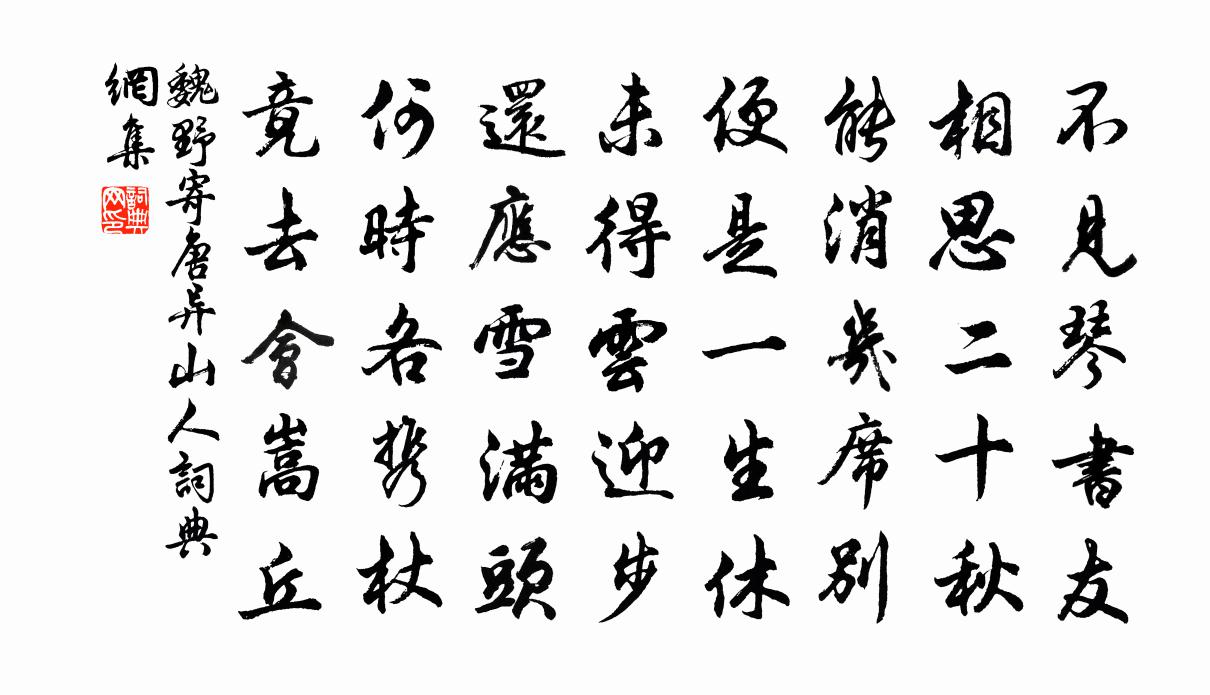 不見琴書友
相思二十秋
能消幾席別
便是一生休
未得雲迎步
還應雪滿頭
何時各携杖
竟去會嵩丘
魏野寄唐异山人詞典
網集
詞典網印